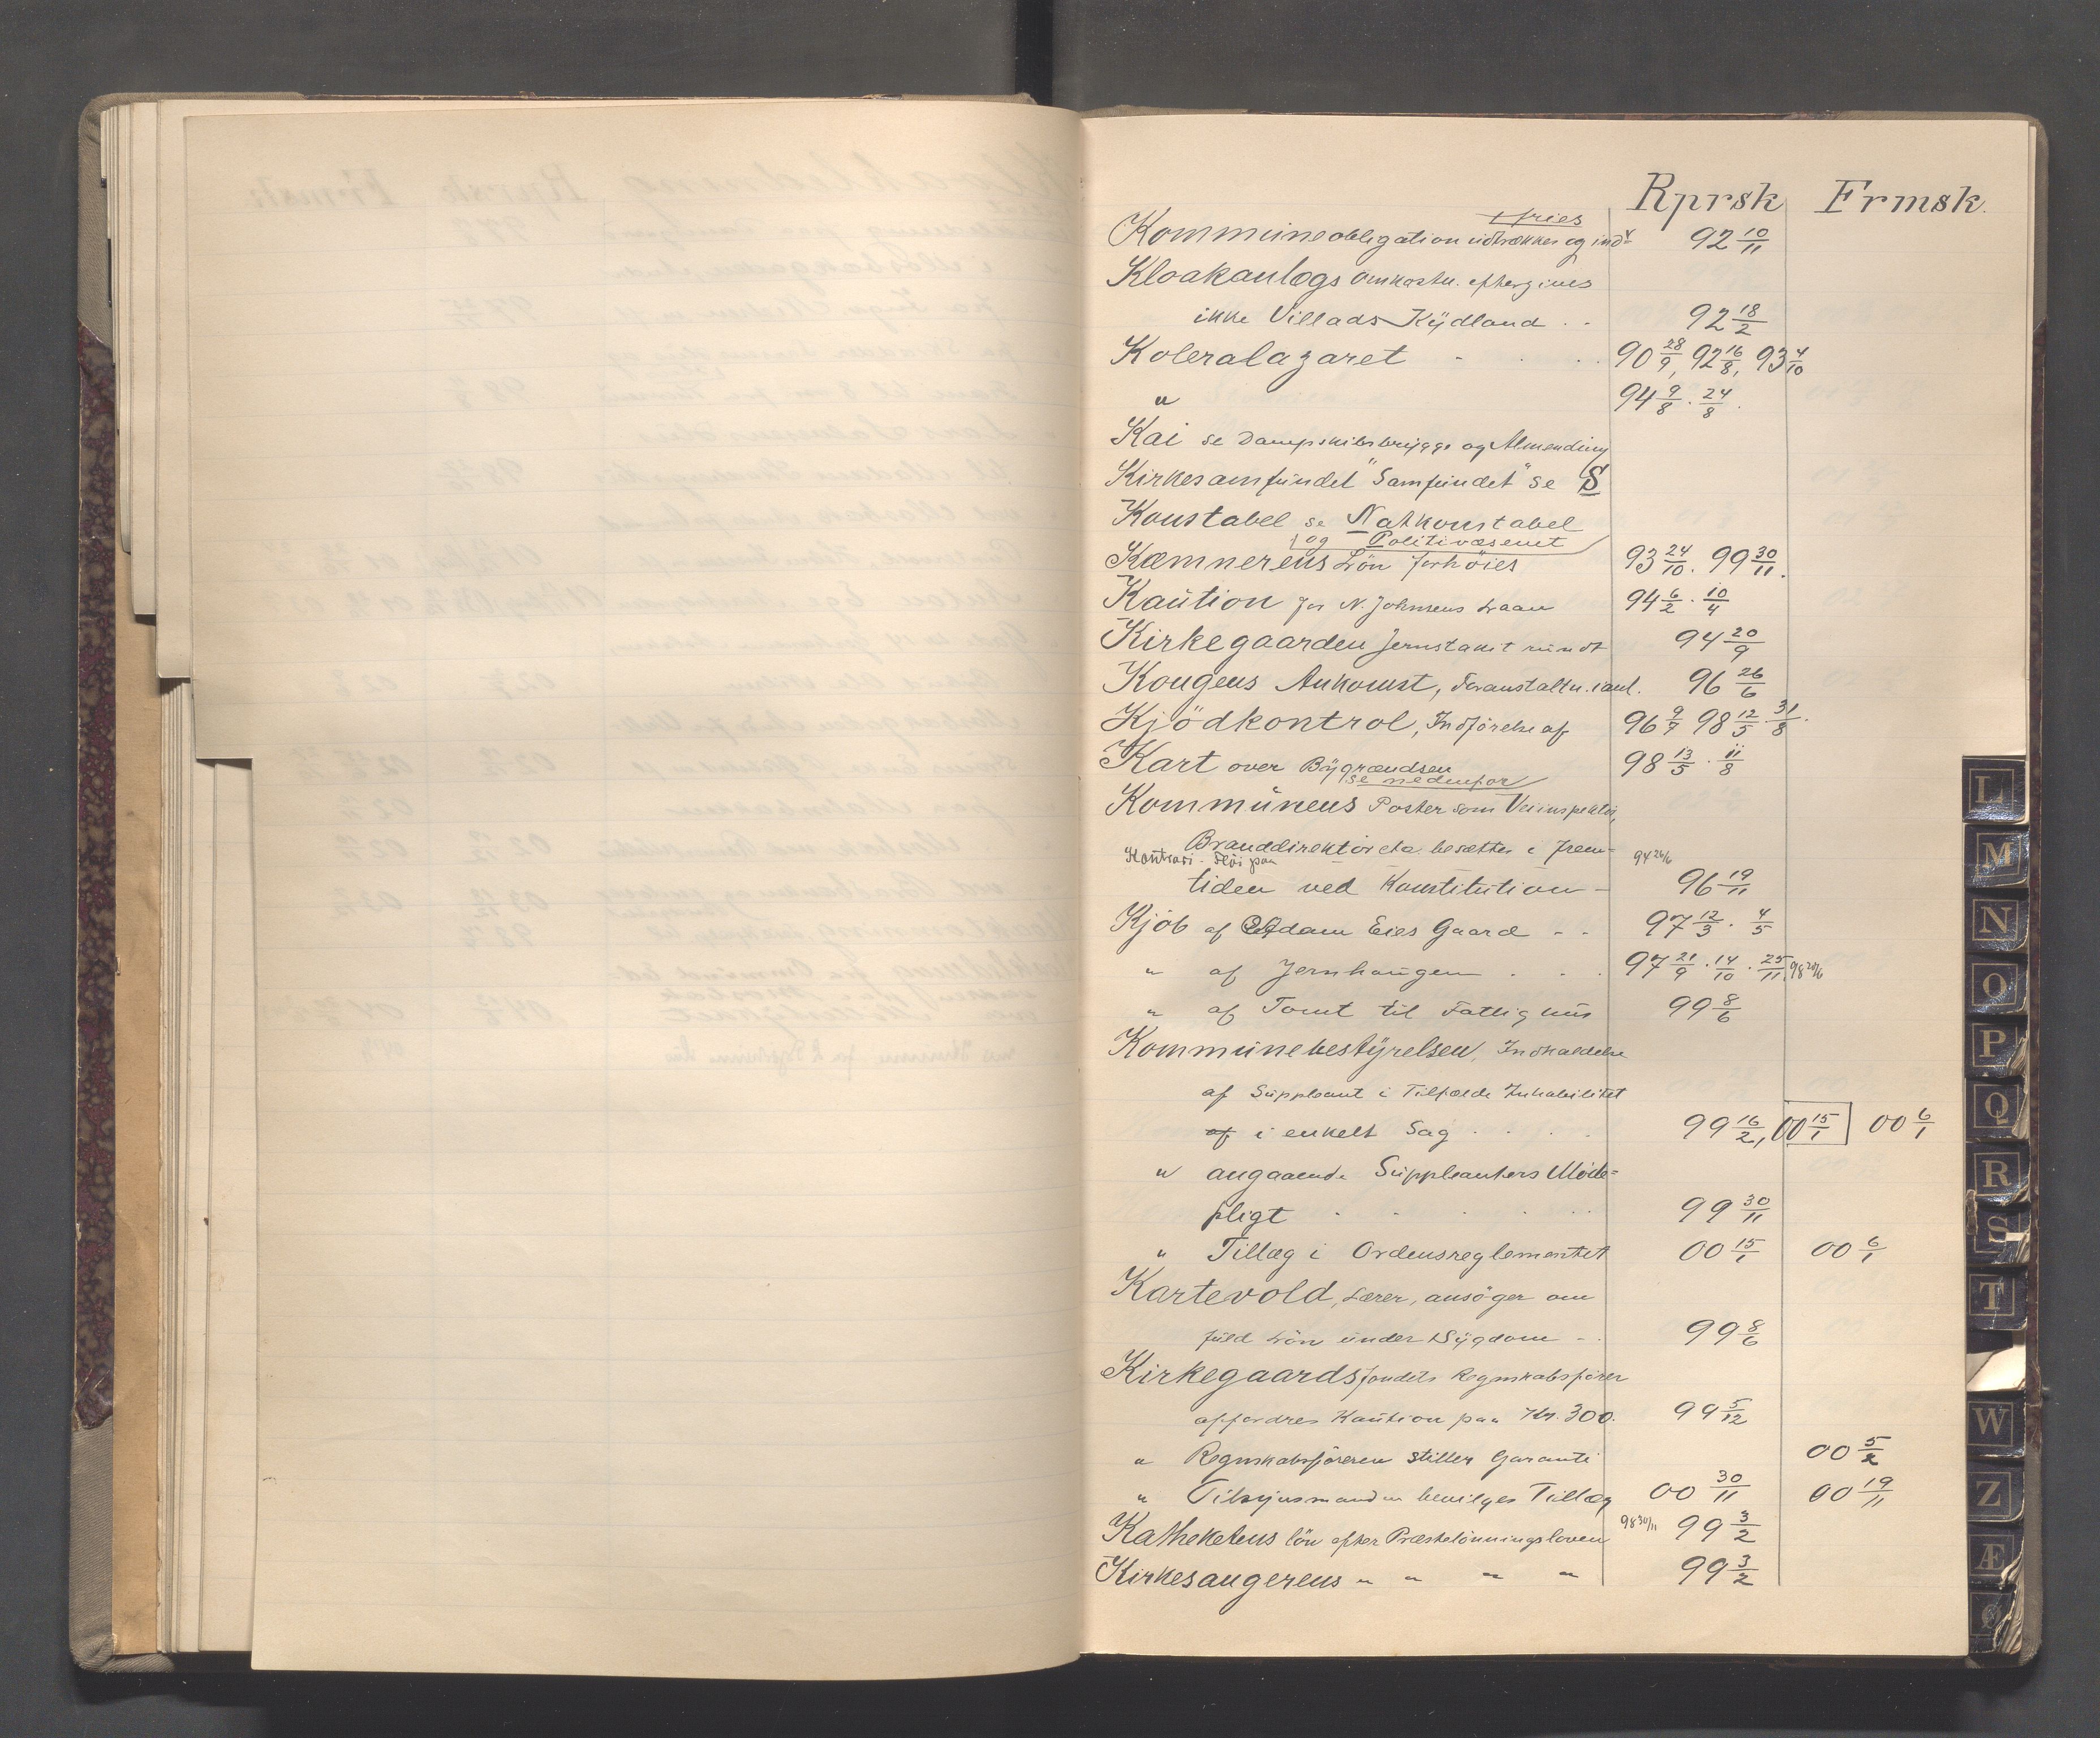 Rprsk Frmsk.
fries
Kommuneobligation udtrækkes og ind- 92 10/11
Kloakanlægs omkostn. eftergives
ikke Villads Kydland . . 92 18/2
Koleralazaret - . . 90 28/9, 92 16/8, 93 4/10
" 94 9/8 . 24/8.
Kai se Dampskibsbrygge og Almending
Kirkesamfundet "Samfundet" se S
Konstabel se Natkonstabel
og Politivæsenet
Kæmnerens Lön forhöies 93 24/10. 99 30/11.
Kaution for N. Johnsens Laan 94 6/2 . 10/4
Kirkegaarden Jernstakit rundt 94 20/9
Kongens Ankomst, Foranstaltn. i anl. 96 26/6
Kjödkontrol, Indförelse af 96 9/7 98 12/5 . 31/8.
Kart over Bygrændsen 98 13/5 . 11/8
se nedenfor
Kommunens Poster som Veiinspektör,
Branddirektör etc. besættes i frem-
Kontrasi-Höi paa 94 26/6
tiden ved Konstitution - 96 19/11
Kjöb af Adam Eies Gaard - - 97 12/3 . 4/5
" af Jernhaugen . . . 97 21/9 . 14/10 . 25/11. 98 20/6
" af Tomt til Fattighus 99 8/6
Kommunebestyrelsen, Indkaldelse
af Suppleant i Tilfælde Inhabilitet
af i enkelt Sag . . . . 99 16/2, 00 15/1 00 6/1
" angaaende Suppleanters Möde-
pligt . . . . . . 99 30/11
" Tillæg i Ordensreglementet 00 15/1 00 6/1
Kartevold, Lærer, ansöger om
fuld Lön under Sygdom - . 99 8/6
Kirkegaardsfondets Regnskabsförer
affordres Kaution paa Kr. 300. 99 5/12
" Regnskabsföreren stiller Garanti 00 5/2
" Tilsynsmanden bevilges Tillæg 00 30/11 00 19/11
Kathekétens lön efter Præstelönningsloven 98 30/11 99 3/2
Kirkesangerens " " " " 99 3/2
L
M
N
O
P
Q
R
S
T
W
Z
Æ
Ø